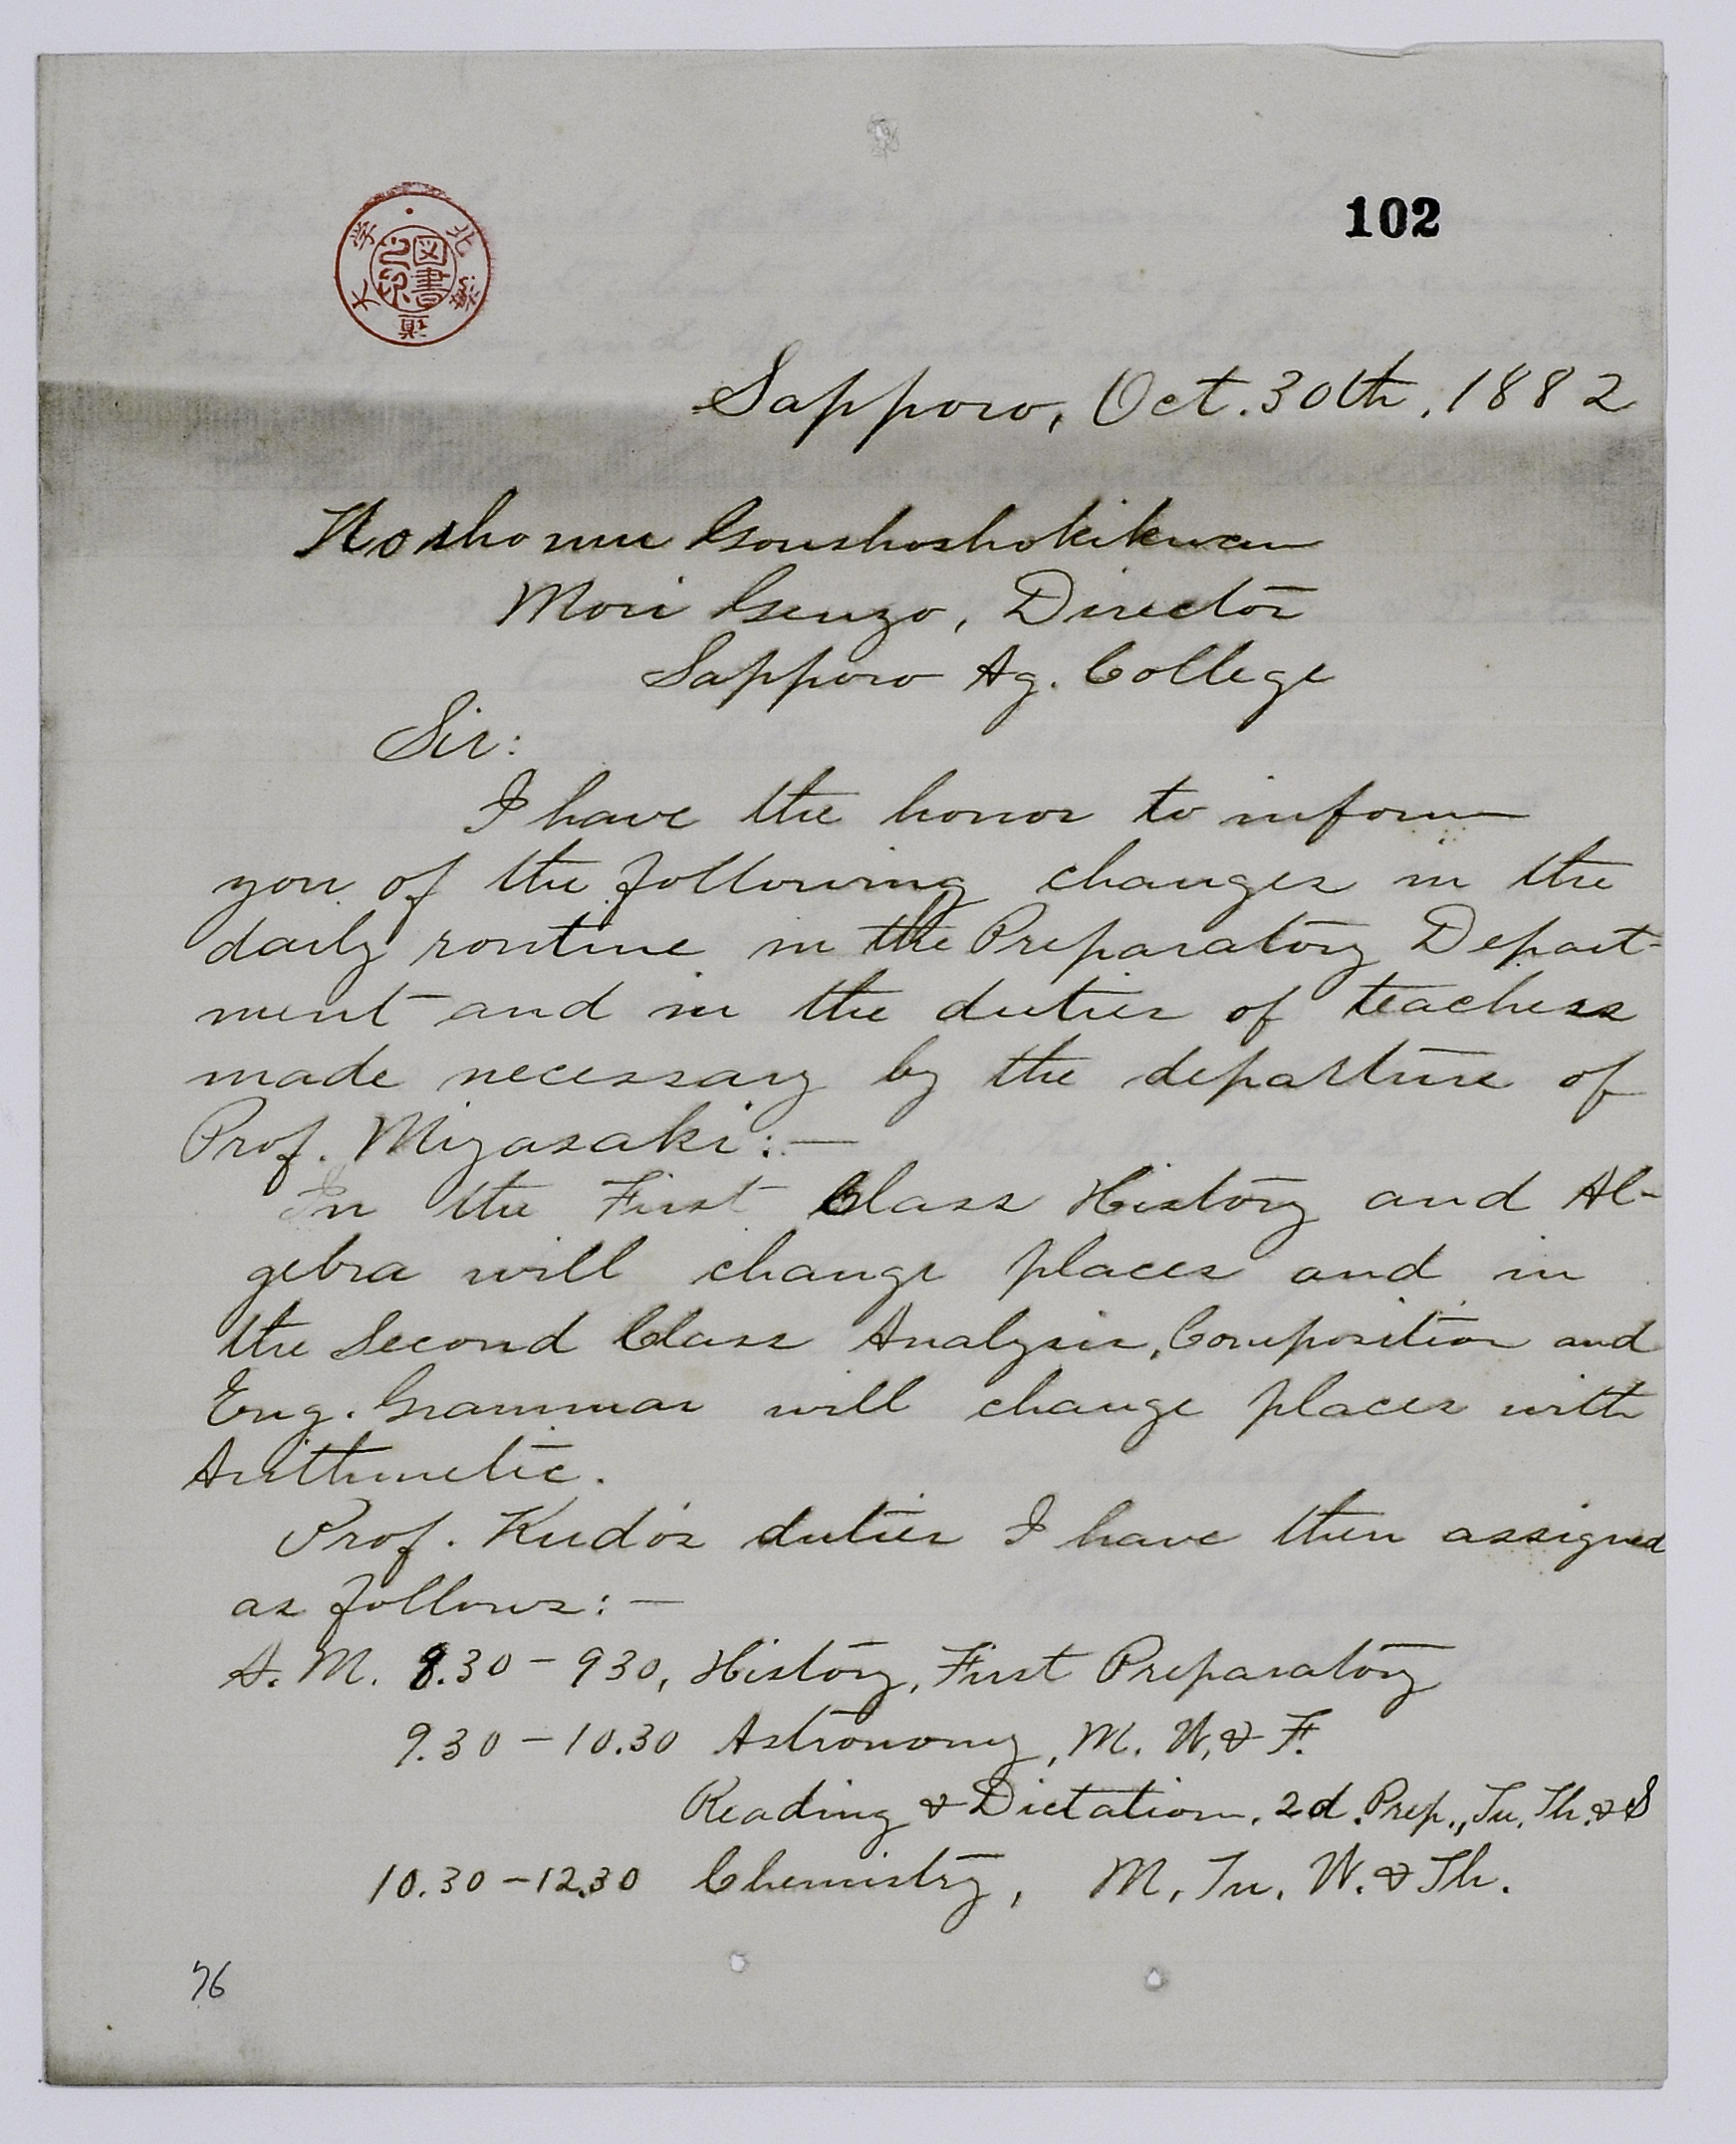 102
北海道大学
図書之印
Sapporo, Oct. 30th, 1882
Noshomu Gonshoshokikwan
Mori Genzo, Director
Sapporo Ag. College
Sir:
I have the honor to inform
you of the following changes in the
daily routine in the Preparatory Depart-
ment and in the duties of teachers
made necessary by the departure of
Prof. Miyasaki:—
In the First Class History and Al-
gebra will change places and in
the Second Class Analysis, Composition and
Eng. Grammar will change places with
Arithmetic.
Prof. Kudo's duties I have then assigned
as follows:—
A. M. 8.30 - 930, History, First Preparatory
9.30 - 10.30 Astronomy, M. W. & F.
Reading & Dictation, 2d. Prep., Tu. Th. & S
10.30 - 12.30 Chemistry, M, Tu. W. & Th.
76